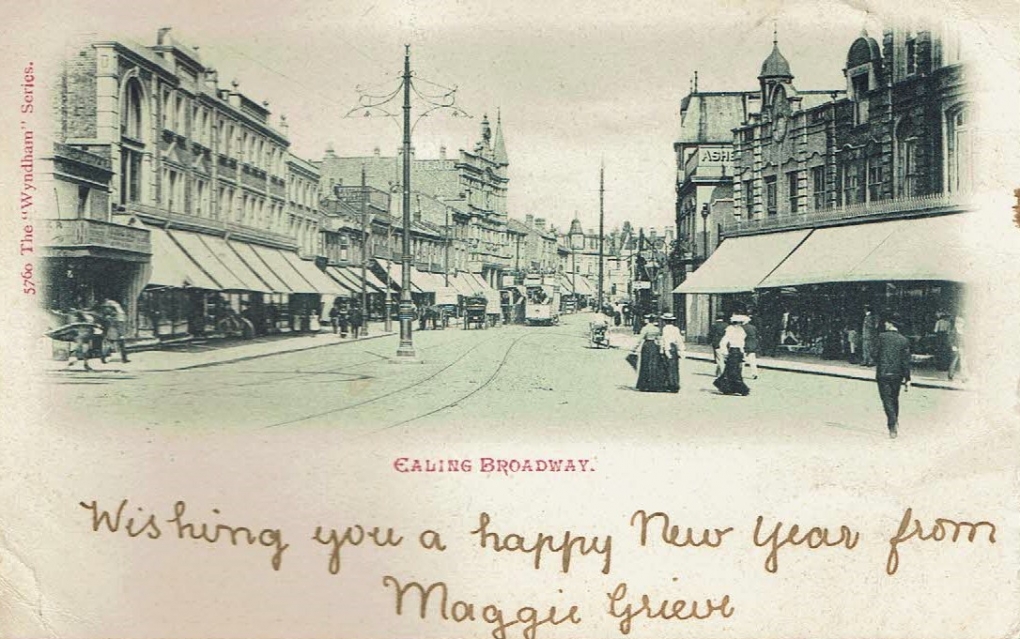 5760 The "Wyndham" Series.
ASHE
EALING BROADWAY.
Wishing you a happy New Year from
Maggie Grieve